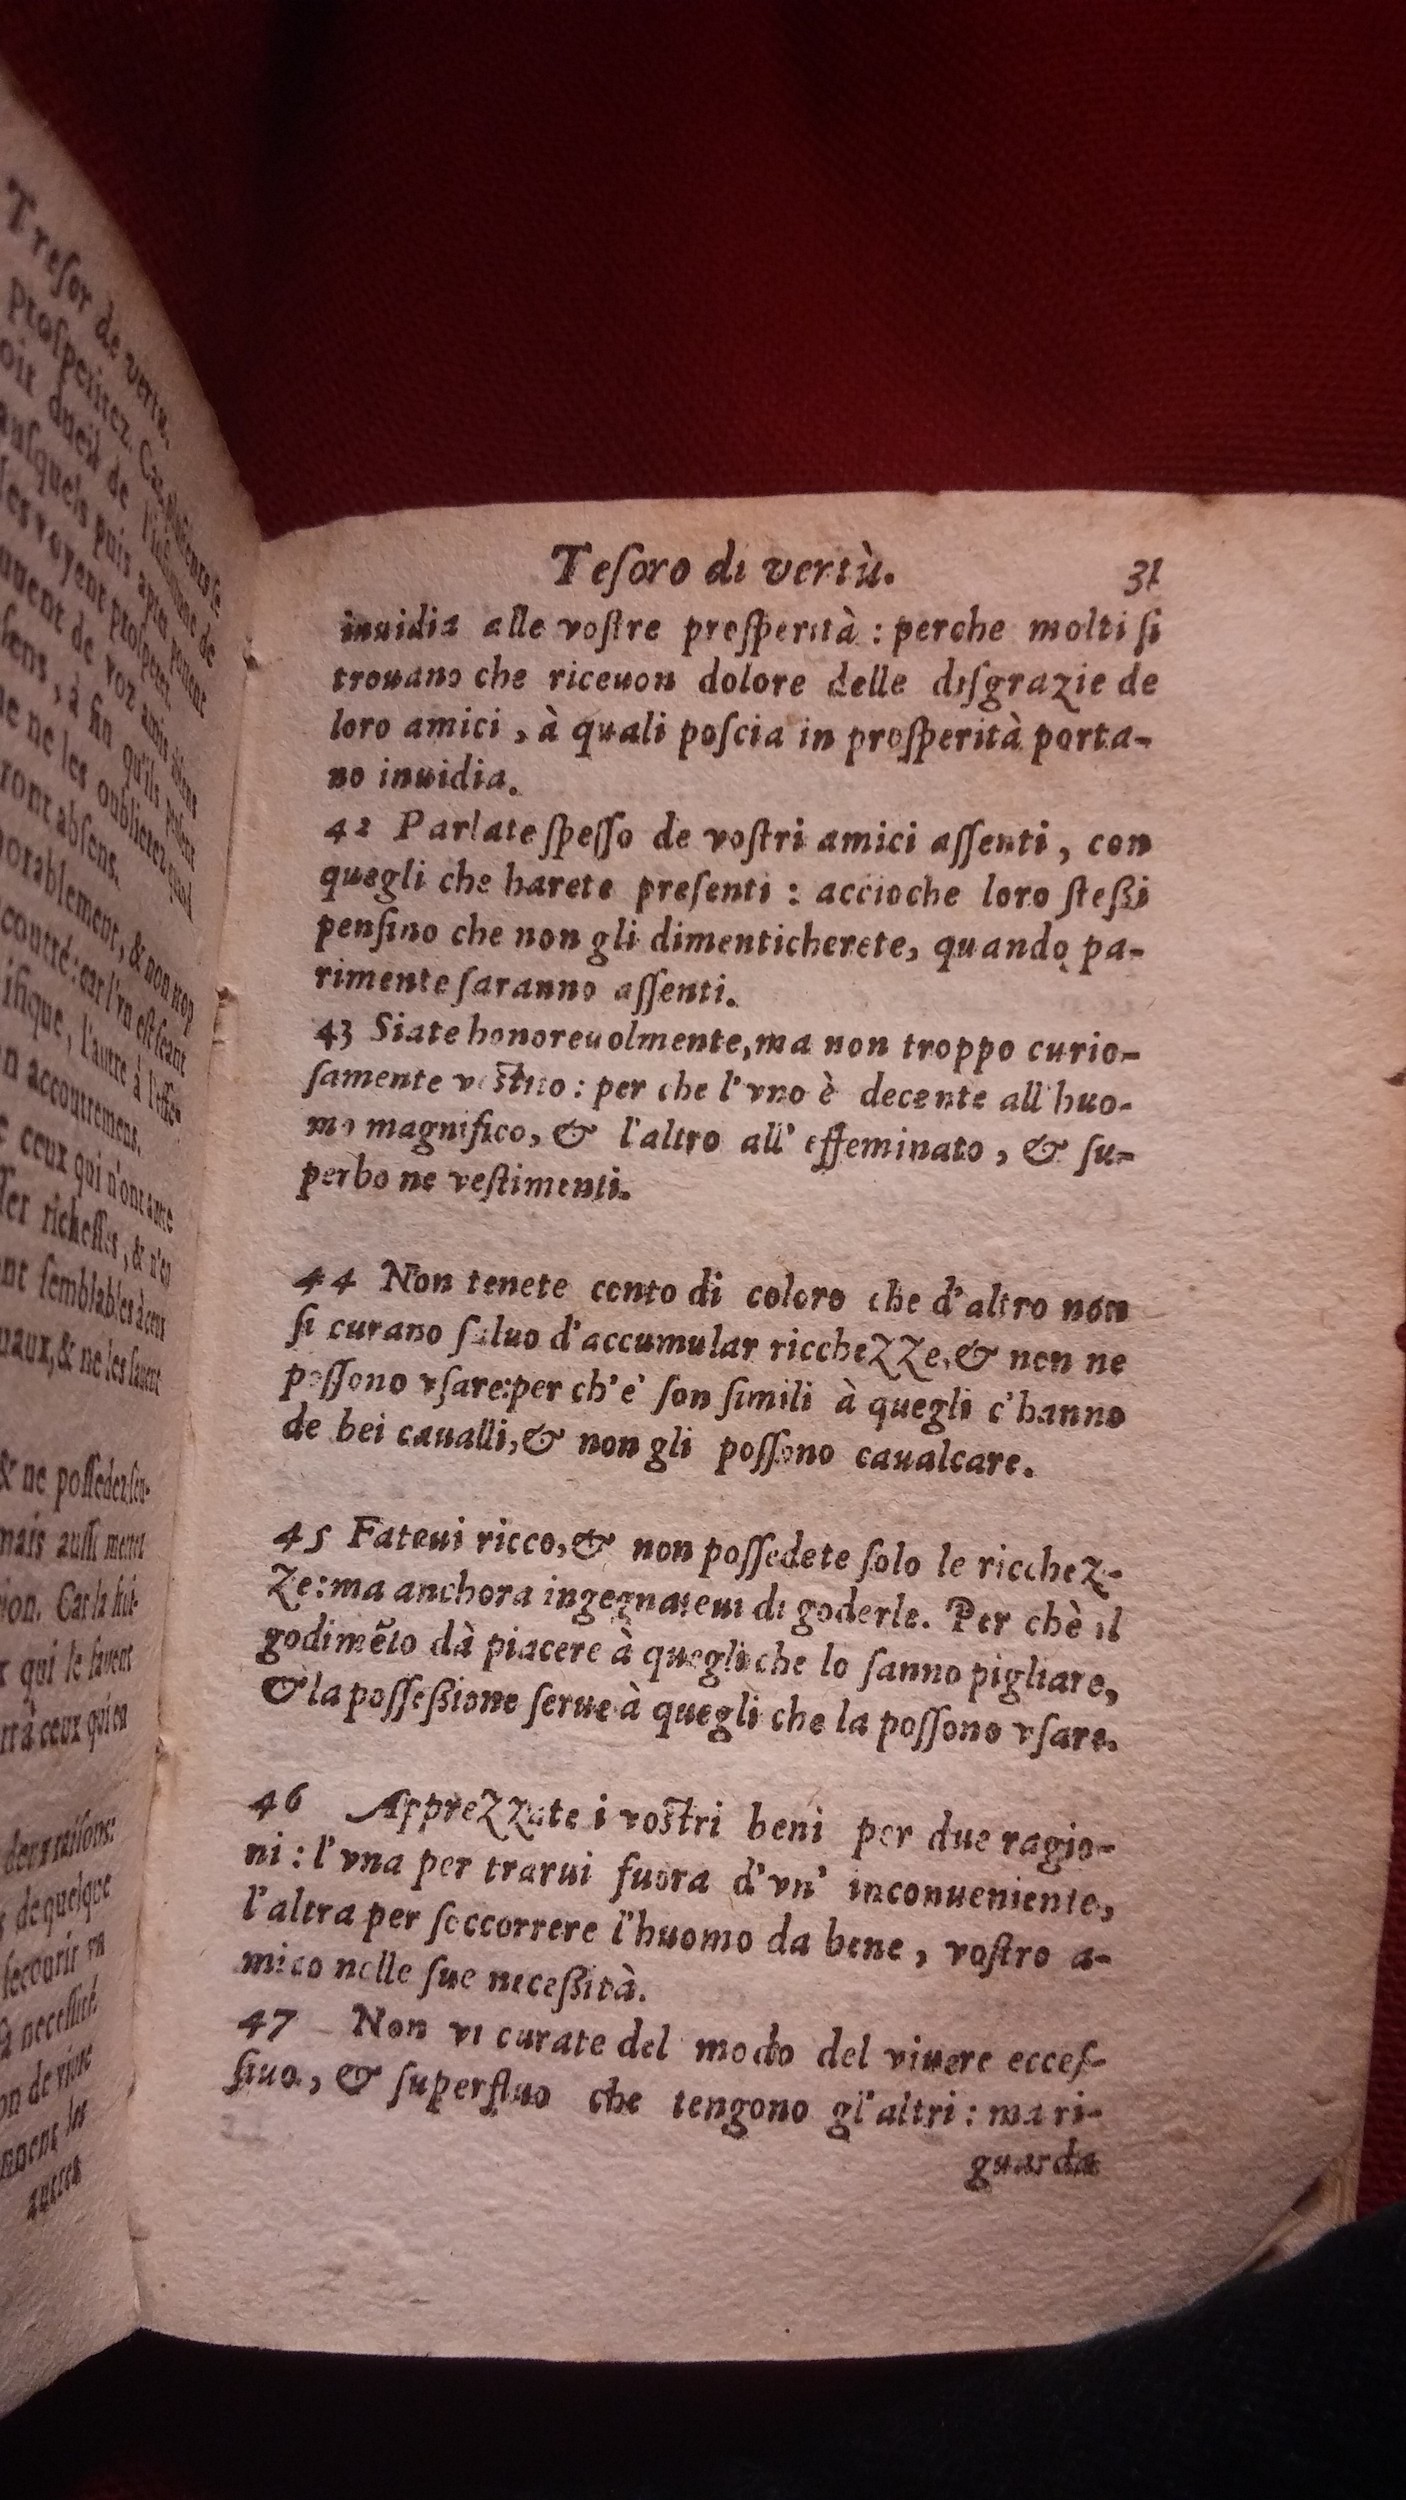 Tresor de vertu.
prosperitez. Car plusieurs se
dueil de l'infortune de
ausquels puis apres
voyent prosperer.
de voz amis
, à fin qu'ils
ne les oublierez quand
ront absens.
norablement, & non trop
coutré: car l'vn est seant
ifique, l'autre à l'effe-
n accoutremens.
ceux qui n'ont autre
richesses, & n'en
nt semblables à ceux
uaux, & ne les sauent
& ne possedez seu-
mais aussi metez
ion. Car la
qui le sauent
à ceux qui en
deux raisons:
de quelque
secourir vn
necessité.
de viure
nnent les
autres
Teſoro di vertù. 31
inuidia alle voſtre proſperità : perche molti ſi
trouano che riceuon dolore delle diſgrazie de
loro amici , à quali poſcia in proſperità porta-
no inuidia.
42 Parlate ſpeſſo de voſtri amici aſſenti , con
quegli che harete preſenti : accioche loro ſteßi
penſino che non gli dimenticherete, quando pa-
rimente ſaranno aſſenti.
43 Siate honoreuolmente, ma non troppo curio-
ſamente veſtito : per che l'vno è decente all'huo-
mo magnifico, & l'altro all' effeminato , & ſu-
perbo ne veſtimenti.
44 Non tenete conto di coloro che d'altro non
ſi curano ſaluo d'accumular ricchezze, & non ne
poſſono vſare: per ch'e' ſon ſimili à quegli c'hanno
de bei caualli, & non gli poſſono caualcare.
45 Fateui ricco, & non poſſedete ſolo le ricchez-
ze: ma anchora ingegnateui di goderle. Per chè il
godimẽto dà piacere à quegli che lo ſanno pigliare,
& la poſſeßione ſerue à quegli che la poſſono vſare.
46 Apprezzate i voſtri beni per due ragio-
ni : l'vna per trarui fuora d'vn' inconueniente,
l'altra per ſoccorrere l'huomo da bene , voſtro a-
mico nelle ſue neceßità.
47 Non vi curate del modo del viuere ecceſ-
ſiuo , & ſuperfluo che tengono gl'altri : ma ri-
guarda